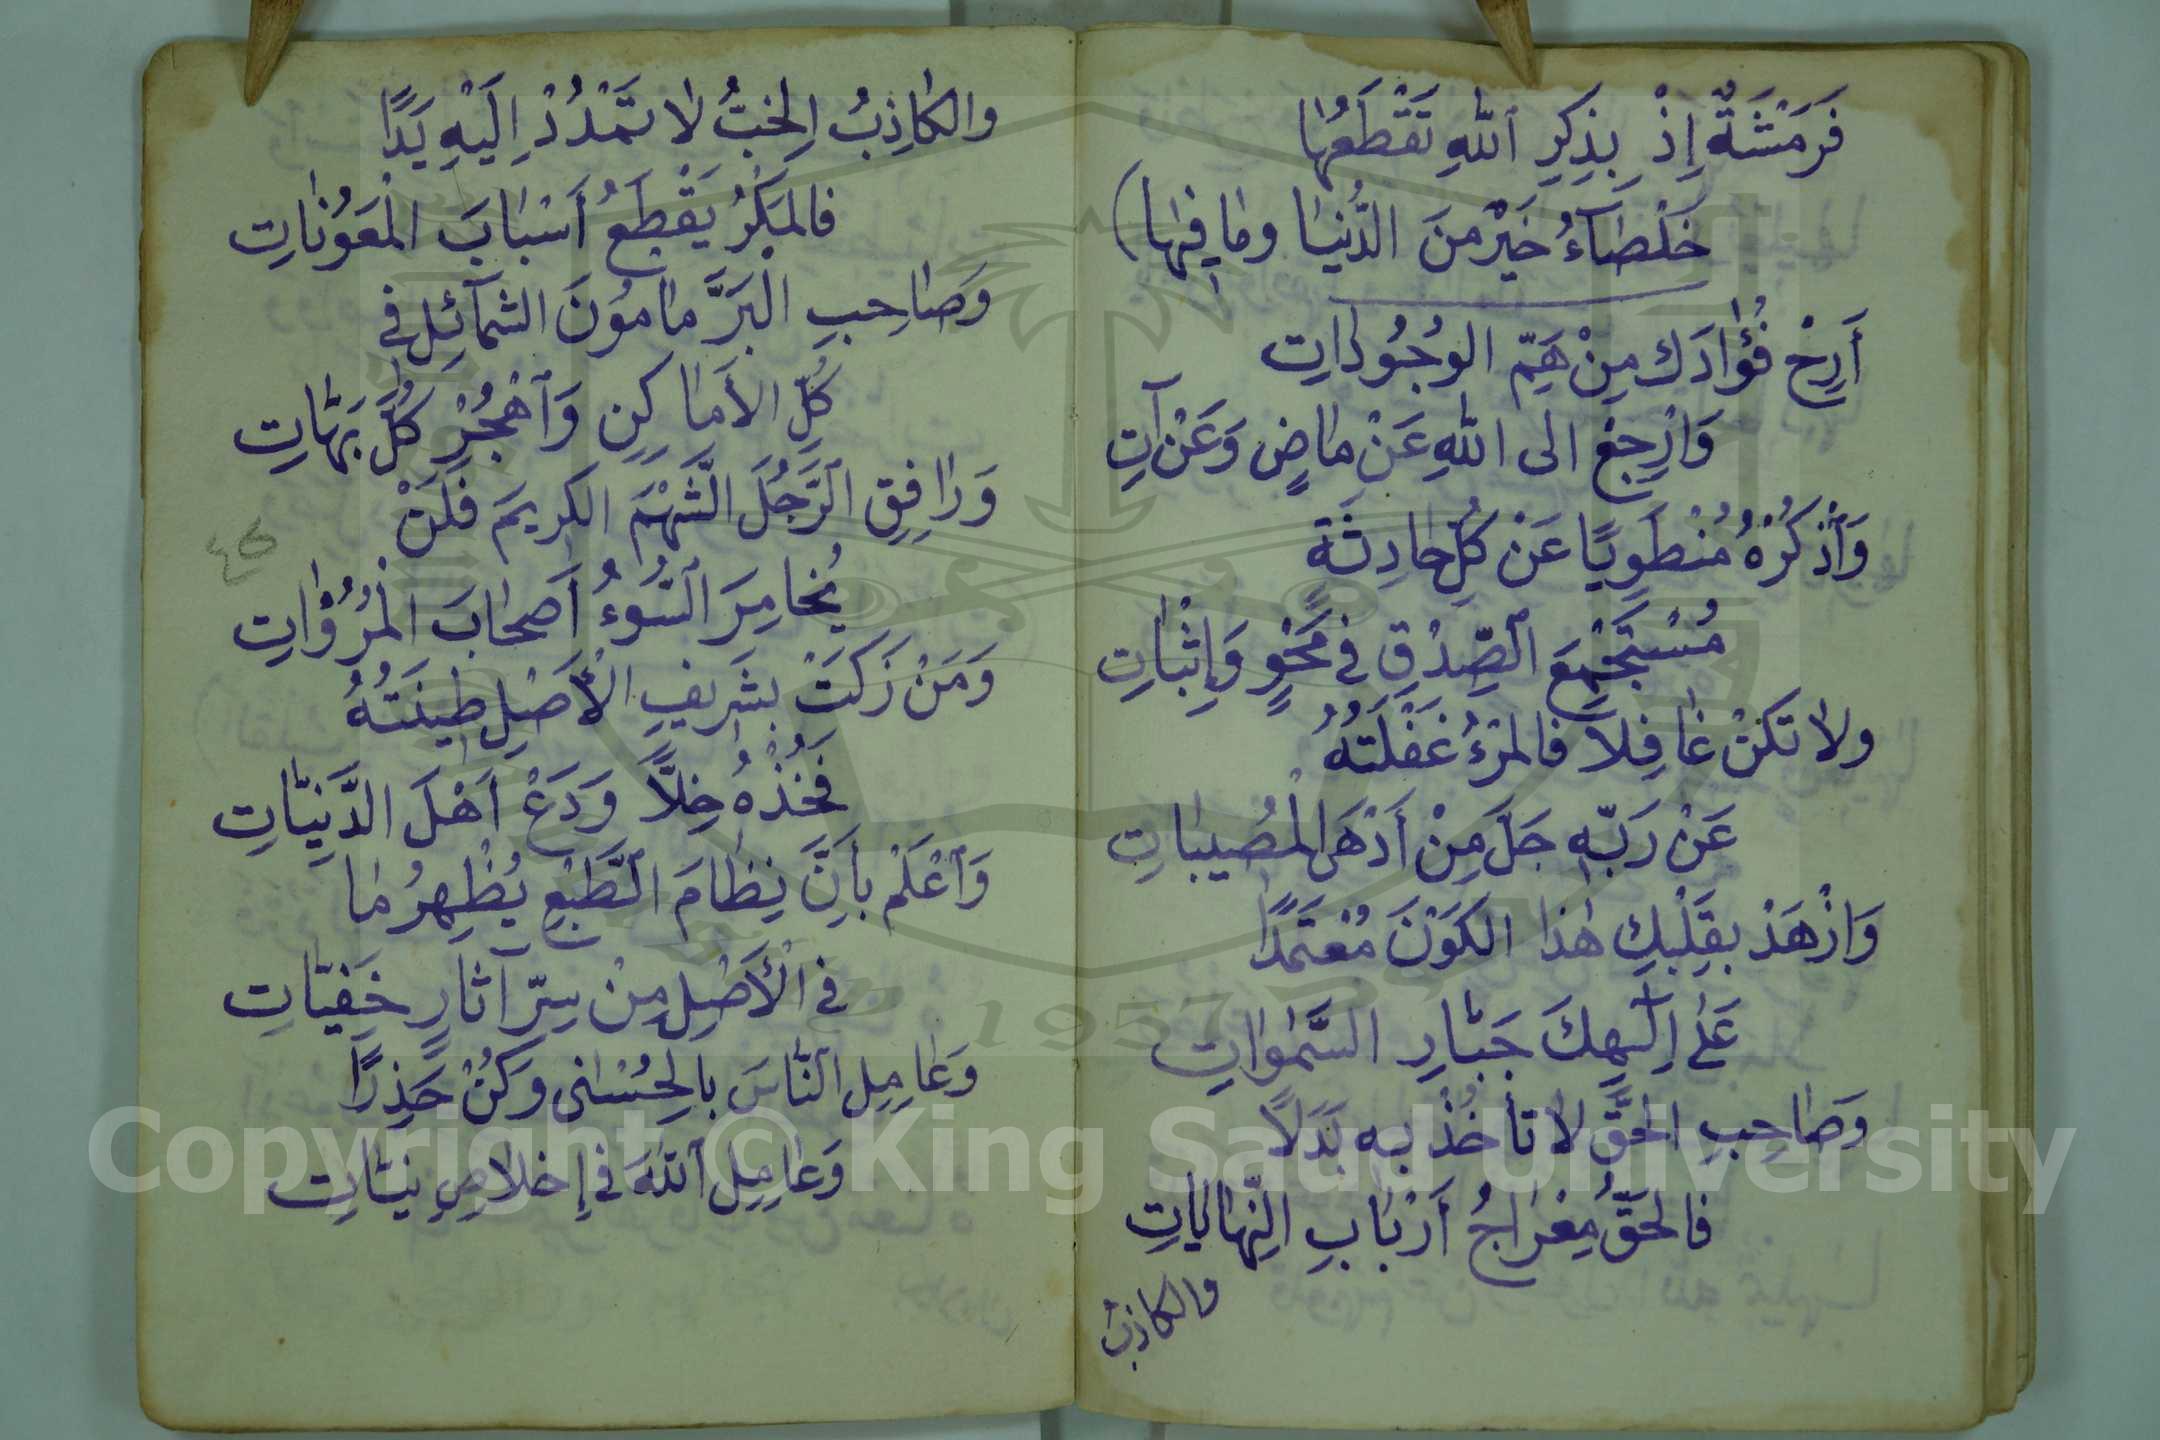 فَرَمْشَةٌ إِذْ بِذِكِرِ ٱللّٰهِ تَقْطَعُهٰا
خَلْصَآءُ خَيْرٌ مِنَ الدُّنْيٰا ومٰا فِيهٰا )
أَرِحْ فُؤٰادَك مِنْ هَمِّ الوُجُودٰاتِ
وَارْجِعْ الى اللّٰهِ عَنْ مٰاضٍ وَعَنْ آتِ
وَٱذْكُرْهُ مُنْطَوِيًا عَنْ كُلِّ حٰادِثَةٍ
مُسْتَجْمِعَ ٱلصِّدْقِ في مَحْوٍ وَإِثْبٰاتِ
ولا تَكنْ غٰافِلاً فالمرْءُ غَفْلَتُهُ
عَنْ رَبِّهِ جَلَّ مِنْ أَدْهَى الْمُصيبٰاتِ
وَازْهَدْ بِقَلْبِكِ هٰذا الكَوْنَ مُعْتَمَدًا
عَلٰى اِلٰهِكَ جَبّٰارِ السَّمٰوٰاتِ
وَصٰاحِبِ الحَقَّ لا تأخُذْ بِه بَدَلاً
فالحَقُّ مِعْرٰاجُ أَرْبٰابِ النِّهٰايٰاتِ
والكاذبُ
والكٰاذِبُ الخِبُّ لا تَمْدُدْ اِلَيْهِ يَدًا
فالمَكْرُ يَقْطَعُ أَسْبٰابَ الْمَعَوُنٰاتِ
وَصٰاحِبِ الْبَرَّ مامُونَ الشمآئِلِ في
كُلِّ الأَمٰاكِنِ وَٱهْجُرْ كُلَّ بَهّٰاتِ
وَرٰافِقِ ٱلرَّجُلَ الشَّهْمَ الكريمَ فَلَنْ
يُخامِرَ ٱلسُّوءُ أَصحٰابَ الْمُرُوّٰاتِ
٤٥
وَمَنْ زَكَتْ بشَريفِ الْأَصْلِ طِينَتُهُ
فَخُذْهُ خِلاًّ وَدَعْ اَهْلَ الدَّنِيّٰاتِ
وَٱعْلَمْ بأَنَّ نِظٰامَ الطَّبْعِ يُظْهِرُ مٰا
في الْأَصْلِ مِنْ سِرّ آثارٍ خَفِيّاتِ
وَعٰامِلِ ٱلنّاسَ بالحِسْنٰى وكَنْ حَذِرًا
وَعٰامِلِ ٱللّٰهَ في إِخلاصِ نيّٰاتِ